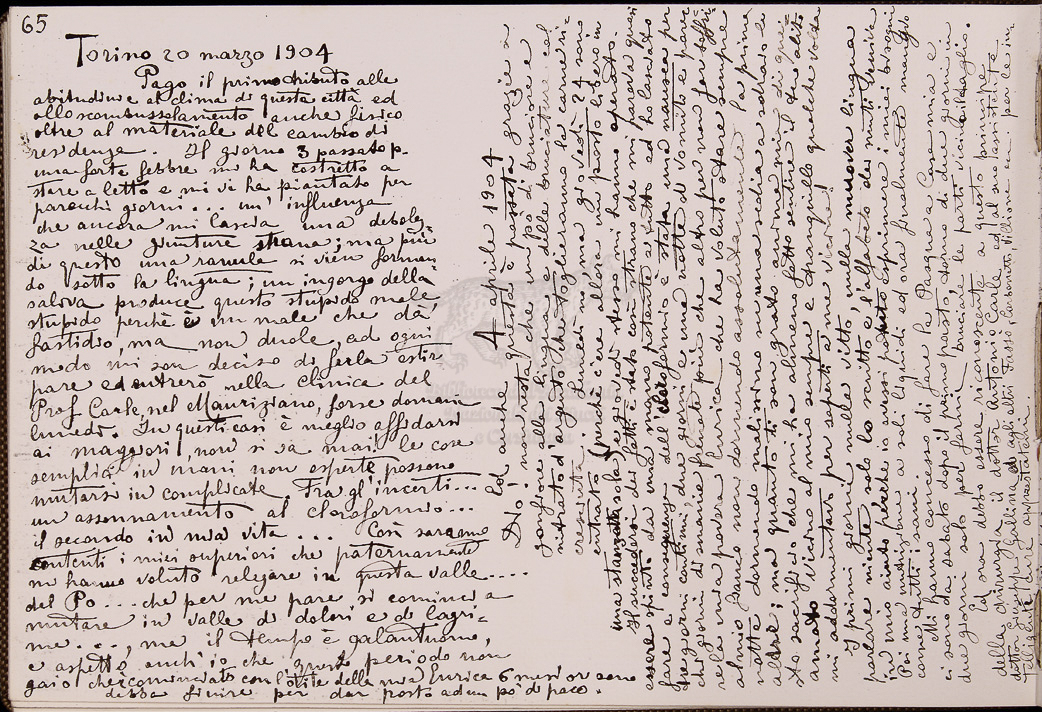 65
Torino 20 marzo 1904
Pago il primo tributo alle
abitudini e al clima di questa città ed
allo scombussolamento anche fisico
oltre al materiale del cambio di
residenza. Il giorno 3 passato p.
una forte febbre mi ha costretto a
stare a letto e mi vi ha piantato per
parecchi giorni... un'influenza
che ancora mi lascia una debolez
za nelle giunture strana; ma più
di questo una ranula si vien forman
do sotto la lingua; un ingorgo della
saliva produce questo stupido male
stupido perchè è un male che dà
fastidio, ma non duole, ad ogni
modo mi son deciso di farla estir
pare ed entrerò nella clinica del
Prof Carle, nel Mauriziano, forse domani
lunedì. In questi casi è meglio affidarsi
ai maggiori, non si sa mai! le cose
semplici in mani non esperte possono
mutarsi in complicate. Fra gl'incerti...
un assonnamento al cloroformio...
il secondo in mia vita... Così saranno
contenti i miei superiori che paternamente
mi hanno voluto relegare in questa valle....
del Po... che per me pare si comincia a
mutare in valle di dolori e di lagri-
me..., me il tempo è galantuomo,
e aspetto anch'io che questo periodo non
gaio che cominciato con l'otite della mia Enrica 6 mesi or sono
debba finire per dar posto ad un po' di pace.
4 aprile 1904
Ed anche questa è passata grazie a
Dio. non resta che un po' di bruciore e
gonfiore alla lingua e delle bruciature al
palato che toglieranno la carne ri-
cresciuta. Lunedì no ma giovedì 24 sono
entrato (perchè c'era allora un posto libero in
una stanza sola) e giovedì stesso mi hanno operato.
essere spinto da una mano potente a tutto ed ho lasciato
fare e conseguenza del cloroformio è stata una nausea per
due giorni continui, due giorni e una notte di vomito e pare
chi giorni di smanie finite più che altro per non far soffri-
re la mia povera Enrica che ha voluto stare sempre
al mio fianco non dormendo assolutamente la prima
notte e dormendo malissimo su una sedia a sdraio le
altre; ma quanto ti son grato anima mia di que-
sto sacrificio che mi ha almeno fatto sentire il tuo alito
amato vicino al mio sempre e tranquillo qualche volta
mi addormentavo per saperti a me vicina!
I primi giorni nulla vitto, nulla muover lingua
parlare niente, solo lo scritto e l'alfabeto dei muti veniva
in mio aiuto perchè io avessi potuto esprimere i miei bisogni
Poi una nutrizione a soli liquidi ed ora finalmente mangio
come tutti i sani.
Mi hanno concesso di fare la Pasqua a Casa mia e
ci sono da sabato dopo il primo posto, torno di due giorni in
due giorni solo per farmi bruciare le parti vicine al taglio.
Ed ora debbo essere riconoscente a questo primissimo
della chirurgia il dottor Antonio Carle ed al suo assistente
dottor Giuseppe Gallina ed agli altri Tassi, Carbonatti, Villanova per le in
telligenti cure apprestatemi.